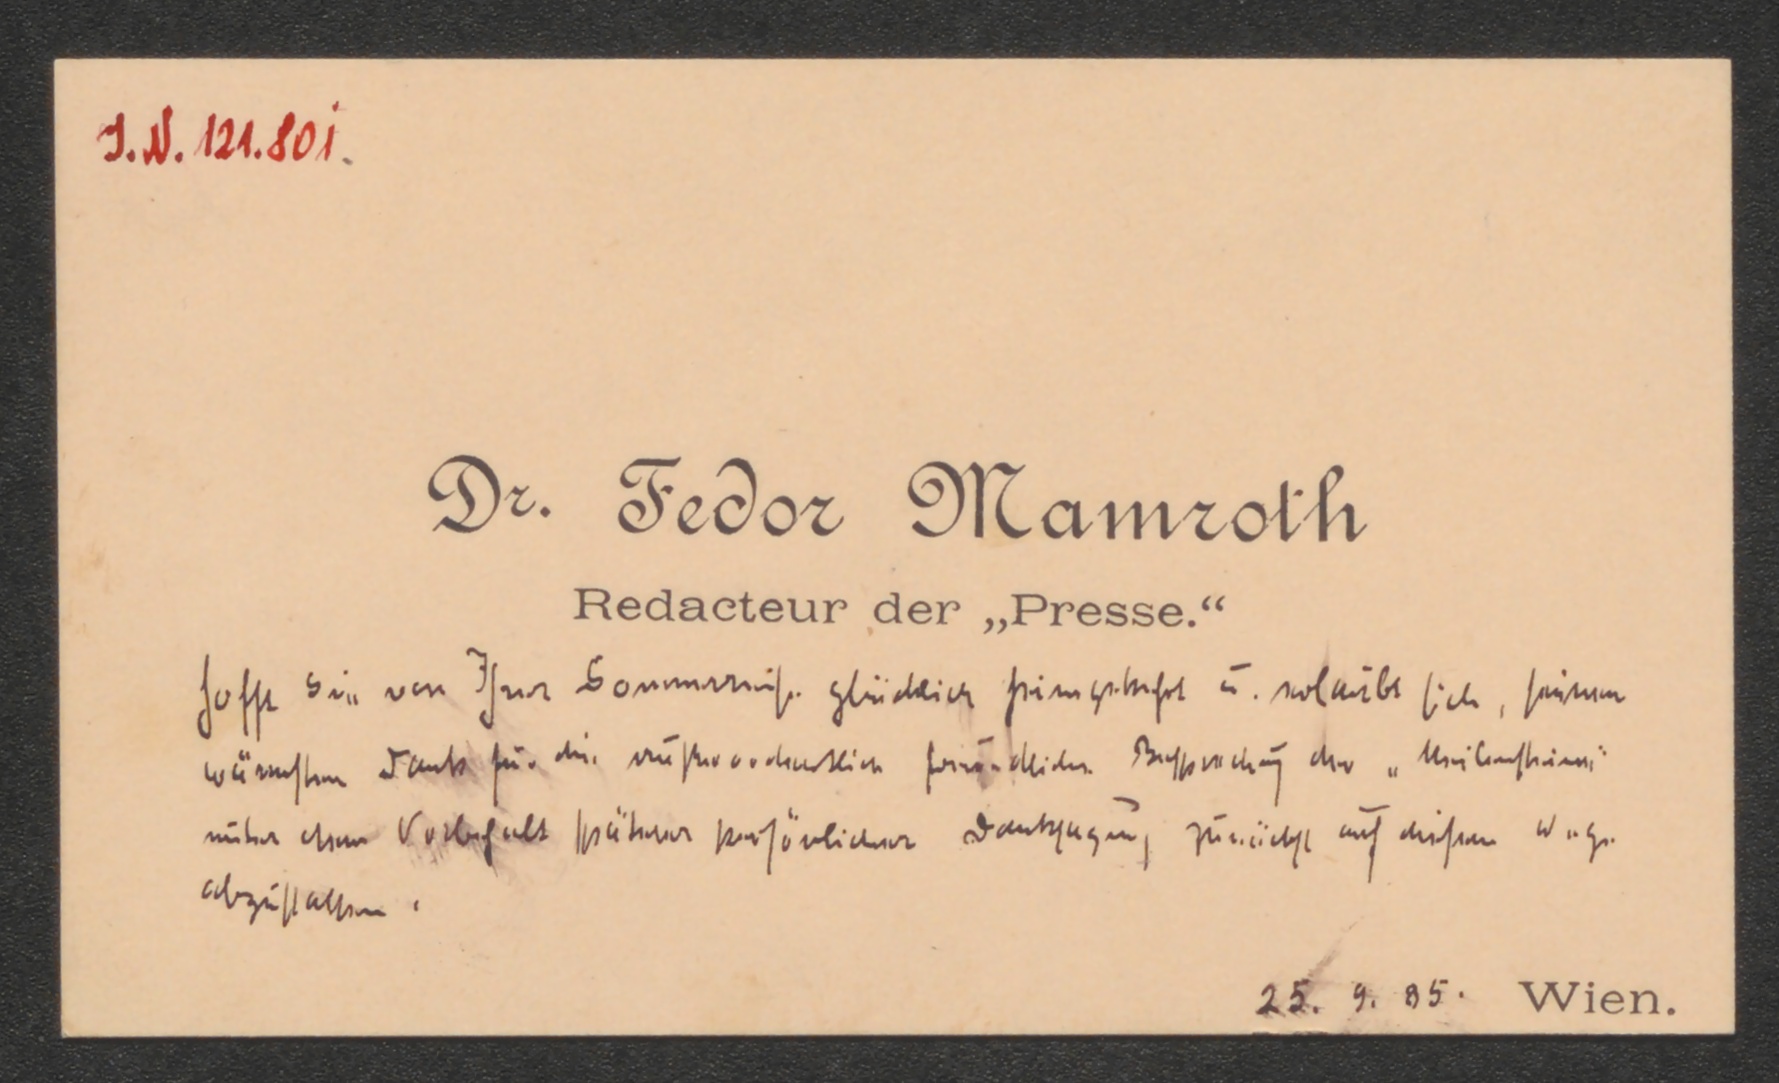 I.N. 121.801.
Dr. Fedor Mamroth
Redacteur der „Presse.“
hofft Sie von Ihrer Sommerreise glücklich heimgekehrt u. erlaubt sich, seinen
wärmsten Dank für die außerordentlich freundliche Besprechung der „Meilensteine“
unter dem Vorbehalt späterer persönlicher Danksagung zunächst auf diesem Wege
abzustatten.
25. 9. 85. Wien.